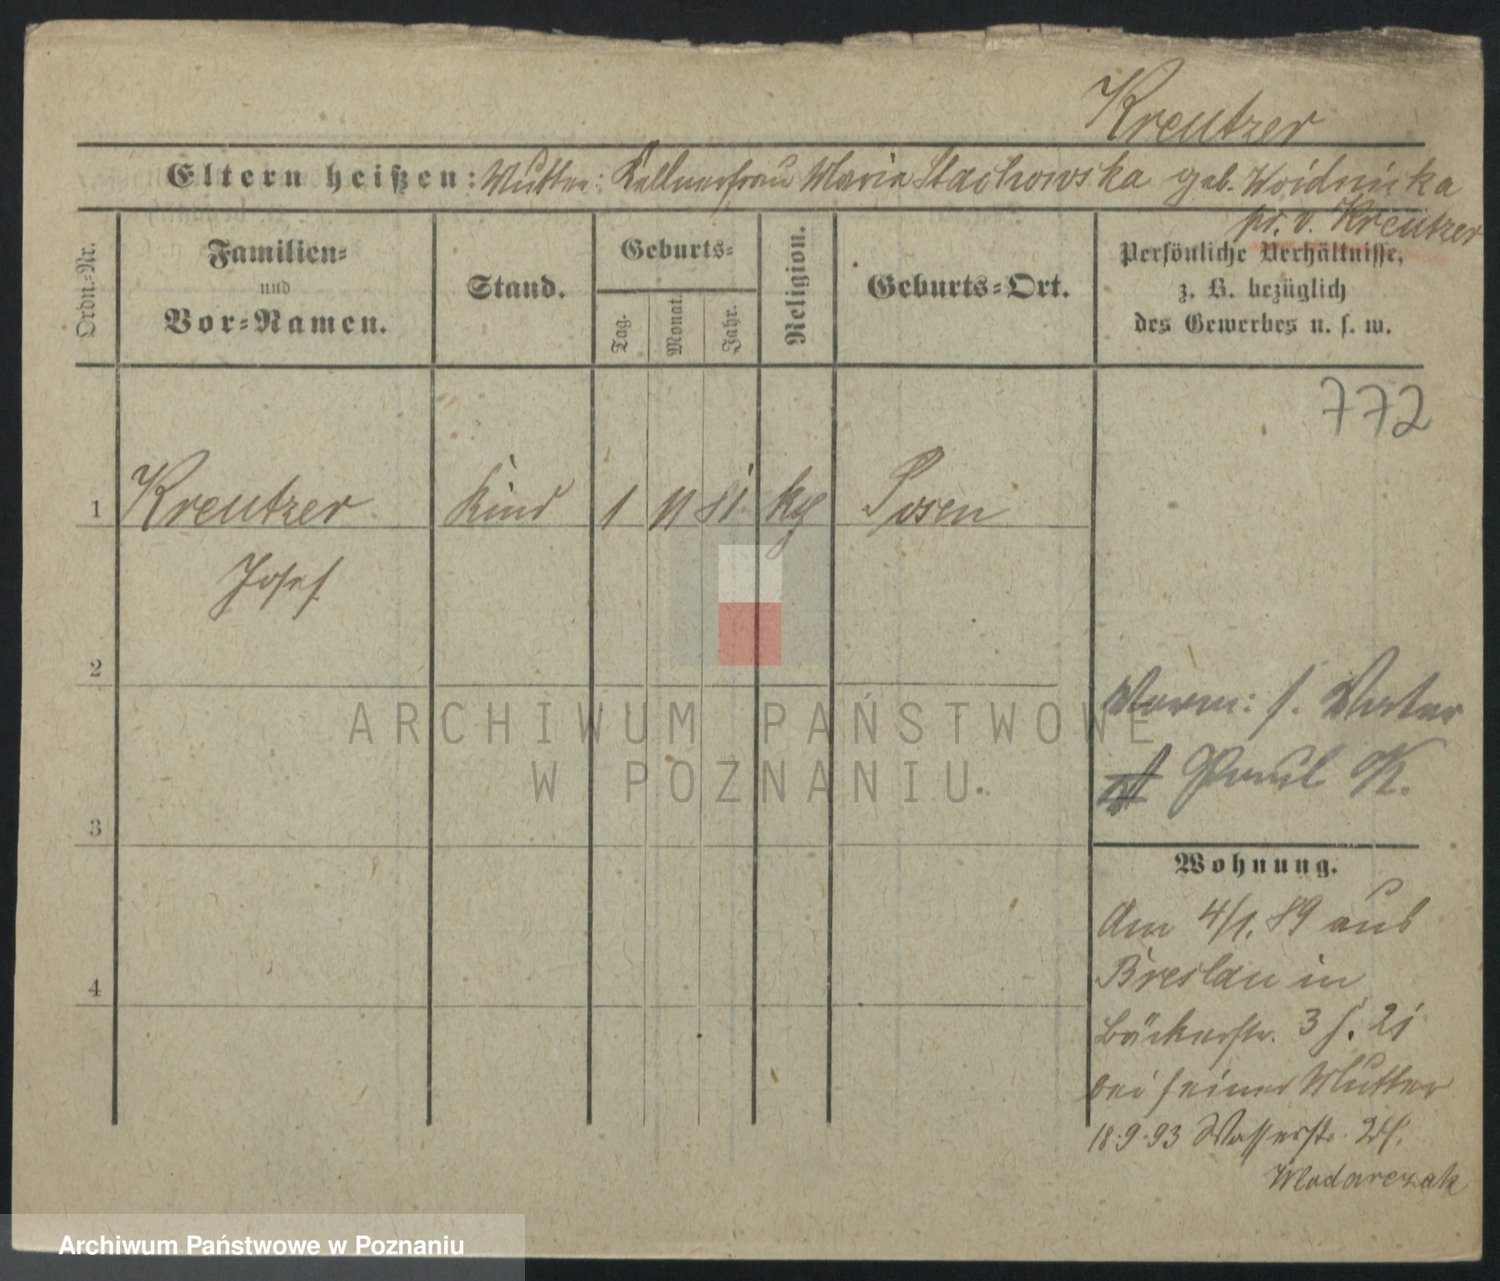 Kreutzer
Eltern heißen: Mutter: Kellnerfrau Maria Stachowska geb. Woidnicka
pr. v. Kreutzer
Ordn.-Nr.
Familien-
und
Vor-Namen.
Stand.
Geburts-
Tag.
Monat.
Jahr.
Religion.
Geburts-Ort.
Persönliche Verhältnisse,
z. B. bezüglich
des Gewerbes u. s. w.
772
1 Kreutzer Kind 1 11 81 kg Posen
Josef
2
3
4
Vorm: s. Vater
Paul K.
Wohnung.
Am 4/1. 89 aus
Breslau in
Bäckerstr. 3
bei seiner Mutter
18.9.93 Wasserstr.
Wlodarczak
ARCHIWUM PAŃSTWOWE
W POZNANIU.
Archiwum Państwowe w Poznaniu